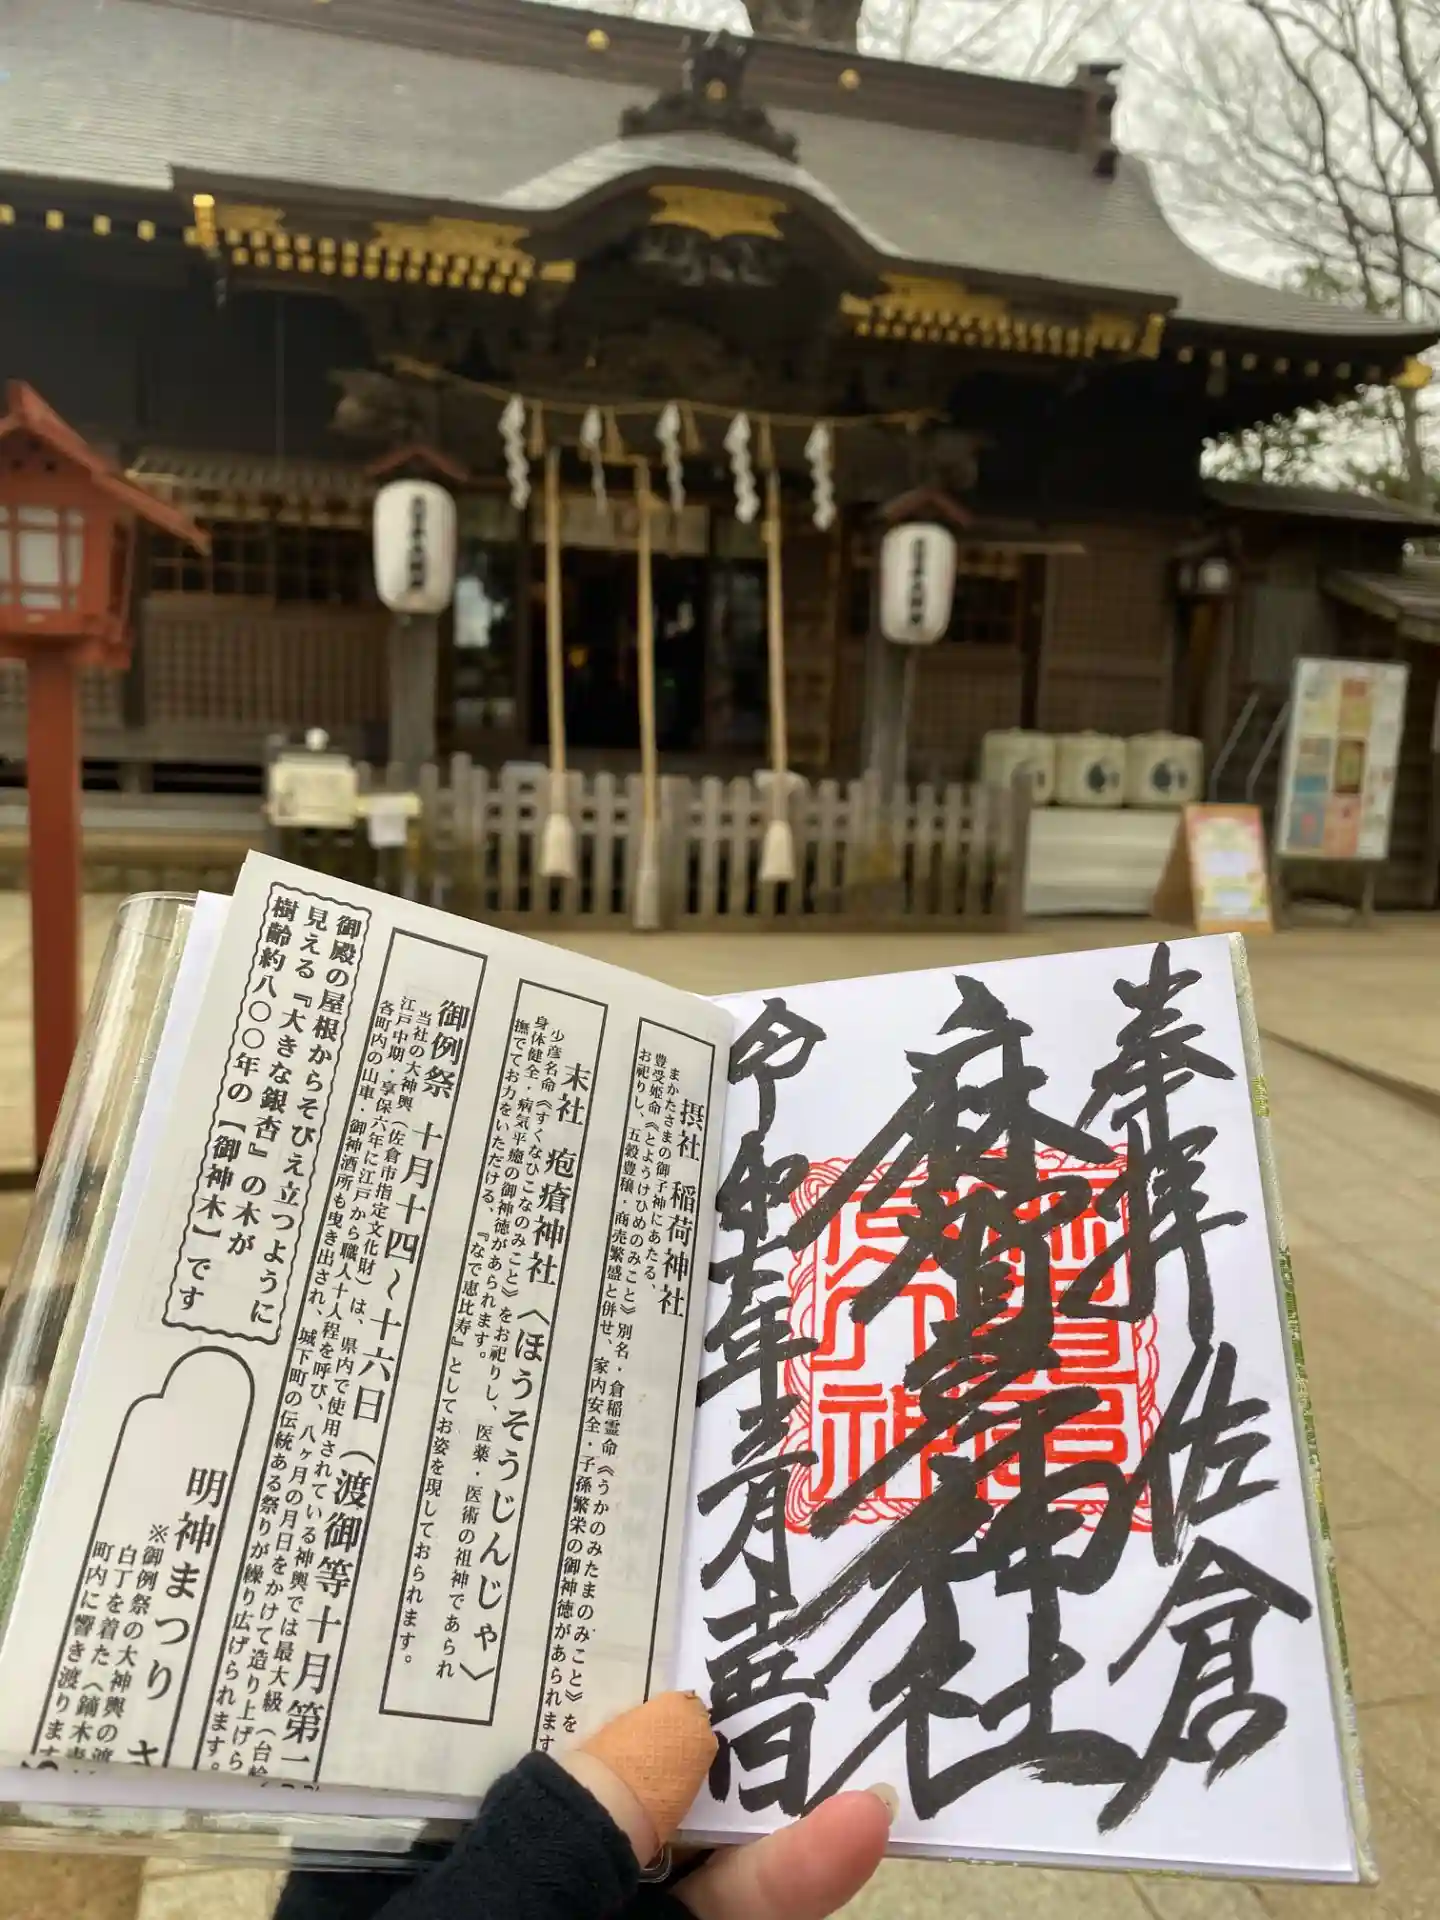 奉拝 佐倉
麻賀多神社
摂社 稲荷神社
まかたさまの御子神にあたる、
豊受姫命《とようけひめのみこと》別名・倉稲霊命《うかのみたまのみこと》を
お祀りし、五穀豊穣・商売繁盛と併せ、家内安全・子孫繁栄の御神徳があられます
末社 疱瘡神社〈ほうそうじんじゃ〉
少彦名命《すくなひこなのみこと》をお祀りし、医薬・医術の祖神であられ
身体健全・病気平癒の御神徳があられます。
撫でてお力をいただける、『なで恵比寿』としてお姿を現しておられます。
御例祭 十月十四～十六日（渡御等十月第一
当社の大神輿（佐倉市指定文化財）は、県内で使用されている神輿では最大級（台輪
江戸中期・享保六年に江戸から職人十人程を呼び、八ヶ月の月日をかけて造り上げら
各町内の山車・御神酒所も曳き出され、城下町の伝統ある祭りが繰り広げられます。
御殿の屋根からそびえ立つように
見える『大きな銀杏』の木が
樹齢約八〇〇年の【御神木】です
明神まつり
※御例祭の大神輿の渡
白丁を着た〈鏑木
町内に響き渡りま